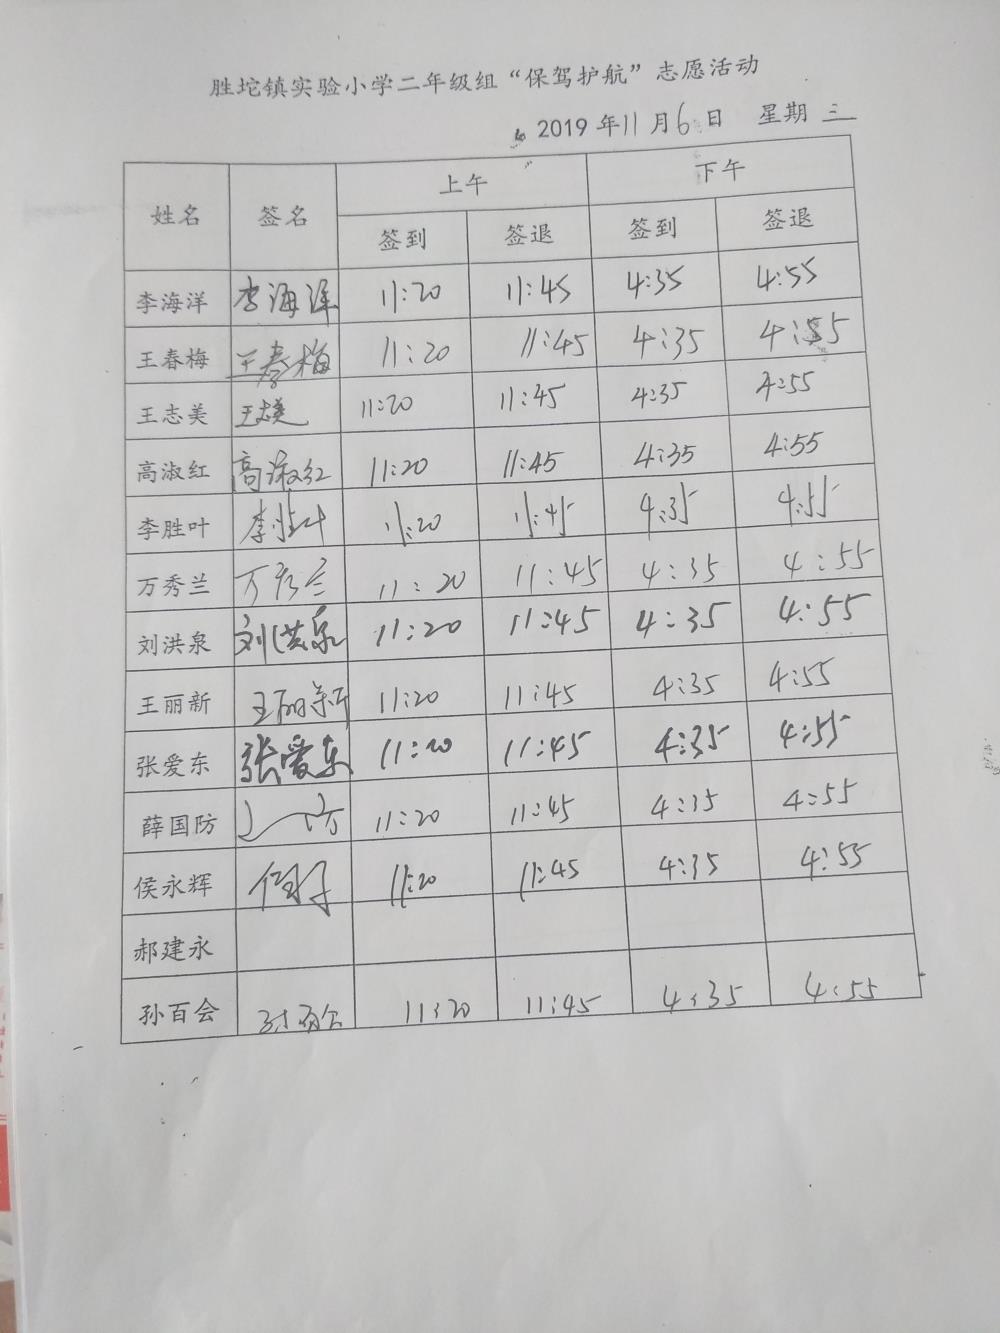 胜坨镇实验小学二年级组“保驾护航”志愿活动
2019年11月6日 星期三
姓名 签名 上午 下午
签到 签退 签到 签退
李海洋 李海洋 11:20 11:45 4:35 4:55
王春梅 王春梅 11:20 11:45 4:35 4:55
王志美 王志美 11:20 11:45 4:35 4:55
高淑红 高淑红 11:20 11:45 4:35 4:55
李胜叶 李胜叶 11:20 11:45 4:35 4:55
万秀兰 万秀兰 11:20 11:45 4:35 4:55
刘洪泉 刘洪泉 11:20 11:45 4:35 4:55
王丽新 王丽新 11:20 11:45 4:35 4:55
张爱东 张爱东 11:20 11:45 4:35 4:55
薛国防 11:20 11:45 4:35 4:55
侯永辉 11:20 11:45 4:35 4:55
郝建永
孙百会 孙百会 11:20 11:45 4:35 4:55